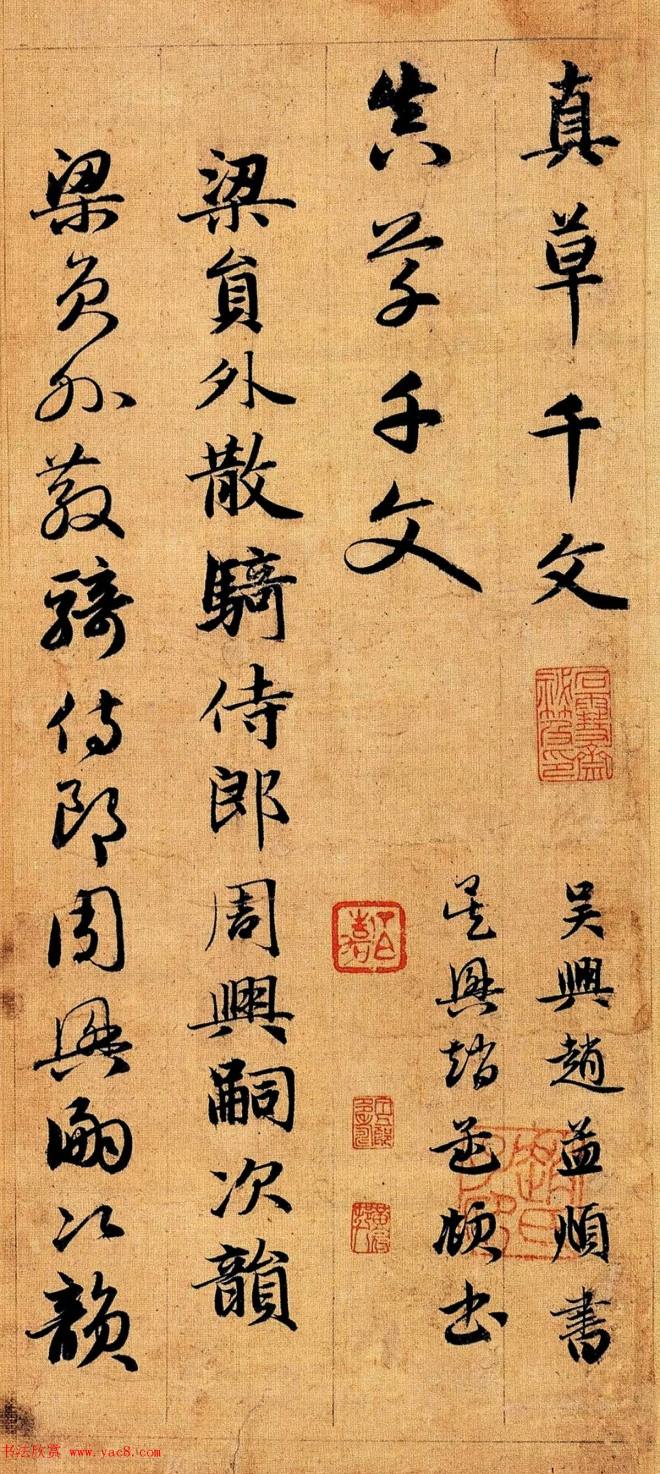 真草千文
石雪齋秘笈印
吴興趙孟頫書
真草千文
吴興趙孟頫書
梁員外散騎侍郎周興嗣次韻
梁員外散騎侍郎周興嗣次韻
书法欣赏 www.yac8.com